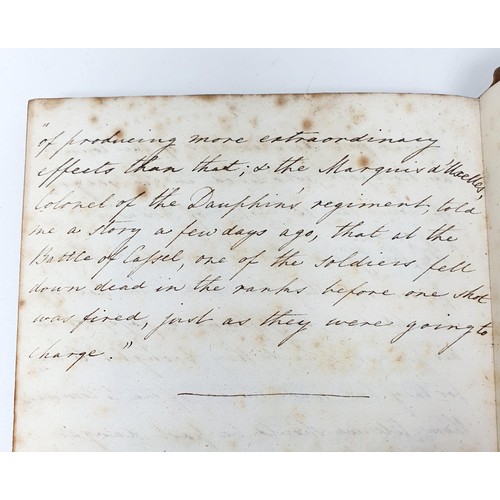 "of producing more extraordinary
effects than that; & the Marquis d'Uxelles,
Colonel of the Dauphin's regiment, told
me a story a few days ago, that at the
Battle of Cassel, one of the soldiers fell
down dead in the ranks before one shot
was fired, just as they were going to
charge."